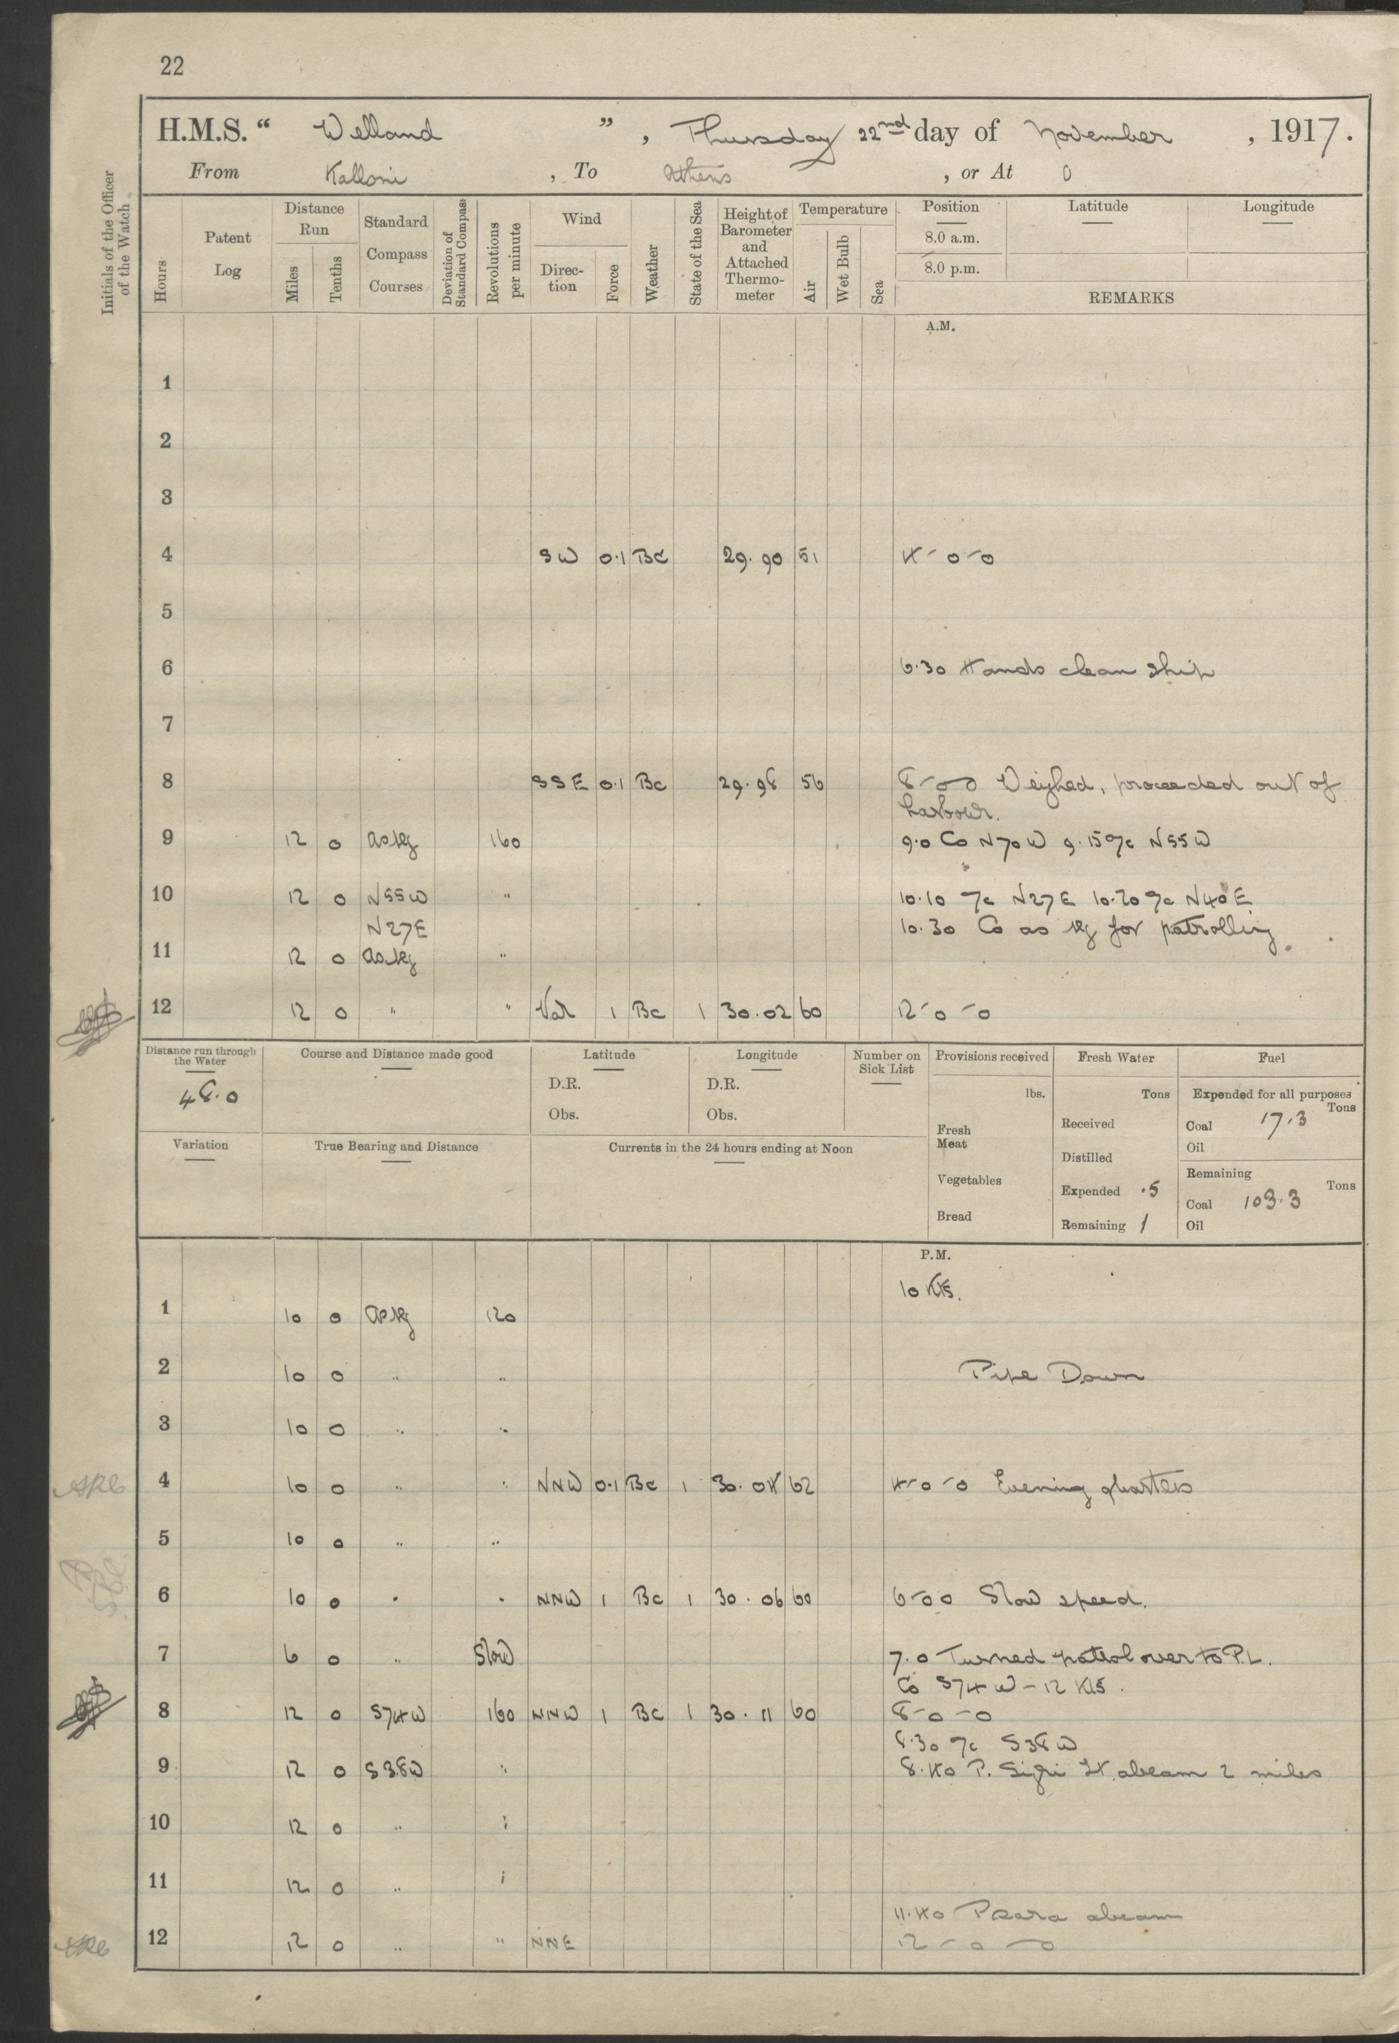 22
H.M.S. “ Welland ” , Thursday 22nd day of November , 1917.
From Kalloni , To Athens , or At 0
Initials of the Officer of the Watch
Hours
Patent Log
Distance Run
Miles
Tenths
Standard Compass Courses
Deviation of Standard Compass
Revolutions per minute
Wind
Direc-tion
Force
Weather
State of the Sea
Height of Barometer and Attached Thermo-meter
Temperature
Air
Wet Bulb
Sea
Position
8.0 a.m.
8.0 p.m.
Latitude
Longitude
REMARKS
A.M.
1
2
3
4 SW 0.1 Bc 29.90 51 4-0-0
5
6 6.30 Hands clean ship
7
8 SSE 0.1 Bc 29.98 56 8-00 Weighed, proceeded out of
harbour.
9 12 0 as rq 160 9.0 Co N70W 9.15 a/c N55W
10 12 0 N55W " 10.10 a/c N27E 10.20 a/c N40E
N27E 10.30 Co as rq for patrolling.
11 12 0 as rq "
12 12 0 " " Var 1 Bc 1 30.02 60 12-0-0
Distance run through the Water
48.0
Course and Distance made good
Latitude
D.R.
Obs.
Longitude
D.R.
Obs.
Number on Sick List
Provisions received
lbs.
Fresh Meat
Vegetables
Bread
Fresh Water
Tons
Received
Distilled
Expended .5
Remaining 1
Fuel
Expended for all purposes
Tons
Coal 17.3
Oil
Remaining
Tons
Coal 103.3
Oil
Variation
True Bearing and Distance
Currents in the 24 hours ending at Noon
P.M.
10 Kts.
1 10 0 as rq 120
2 10 0 " " Pipe Down
3 10 0 " "
4 10 0 " " NNW 0.1 Bc 1 30.04 62 4-0-0 Evening quarters
5 10 0 " "
6 10 0 " " NNW 1 Bc 1 30.06 60 6-00 Slow speed.
7 6 0 " Slow 7.0 Turned patrol over to P.L.
Co S74W - 12 Kts.
8 12 0 S74W 160 NNW 1 Bc 1 30.11 60 8-0-0
8.30 a/c S38W
9 12 0 S38W " 8.40 P. Sigri Lt. abeam 2 miles
10 12 0 " "
11 12 0 " "
11.40 Psara abeam
12 12 0 " " NNE 12-0-0